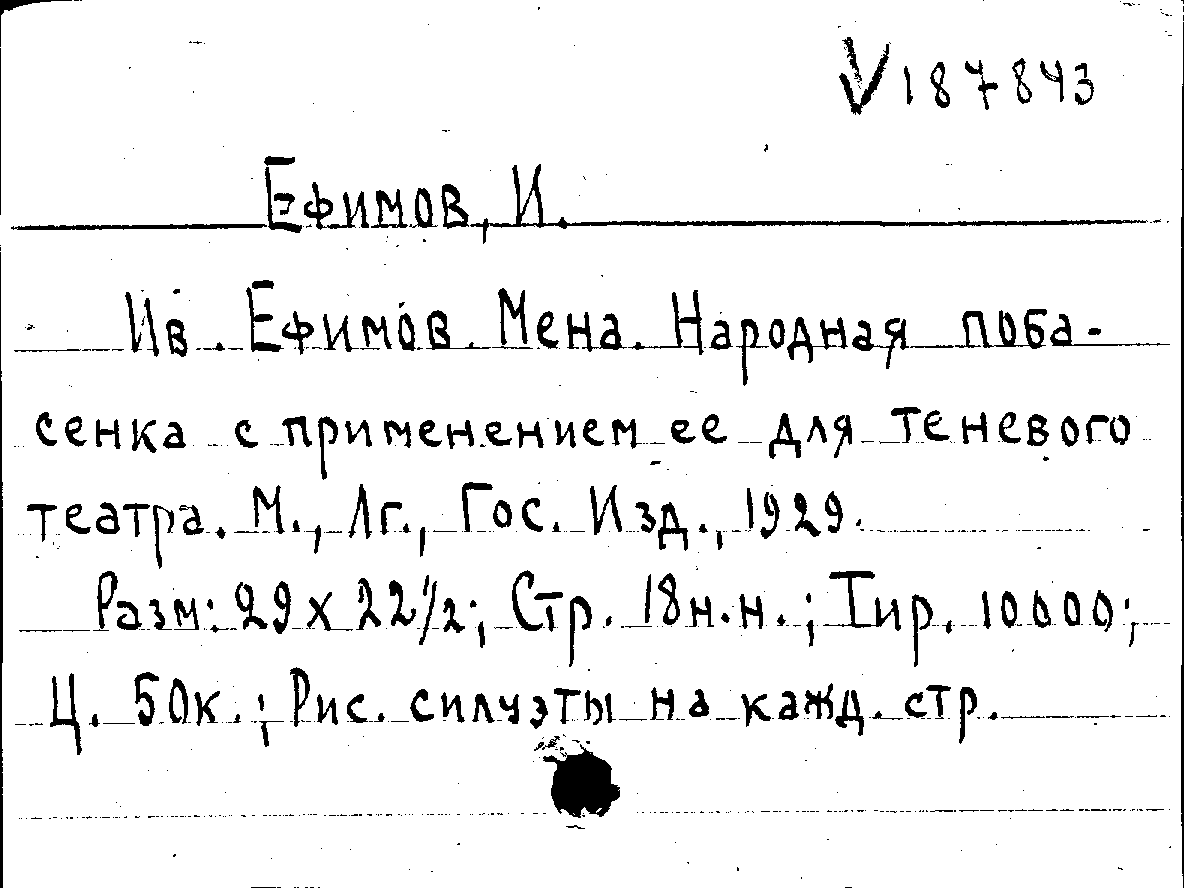 V187843
Ефимов, И.
Ив. Ефимов. Мена. Народная поба-
сенка с применением ее для теневого
театра. М., Лг., Гос. Изд., 1929.
Разм: 29 x 22 1/2; Стр. 18 н.н.; Тир. 10000;
Ц. 50к.; Рис. силуэты на кажд. стр.